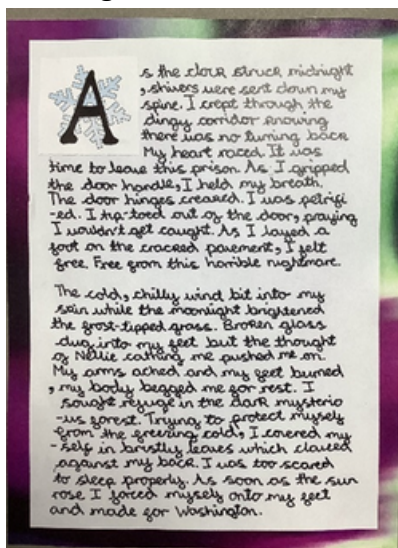 As the clock struck midnight
, shivers were sent down my
spine. I crept through the
dingy corridor knowing
there was no turning back
My heart raced. It was
time to leave this prison. As I gripped
the door handle, I held my breath.
The door hinges creaked. I was petrifi
-ed. I tip-toed out of the door, praying
I wouldn't get caught. As I layed a
foot on the cracked pavement, I felt
free. Free from this horrible nightmare.
The cold, chilly wind bit into my
skin while the moonlight brightened
the frost-tipped grass. Broken glass
dug into my feet but the thought
of Nellie cathing me pushed me on.
My arms ached and my feet burned
, my body begged me for rest. I
sought refuge in the dark mysterio
-us forest. Trying to protect myself
from the freezing cold, I covered my
-self in bristly leaves which clawed
against my back. I was too scared
to sleep properly. As soon as the sun
rose I forced myself onto my feet
and made for Washington.